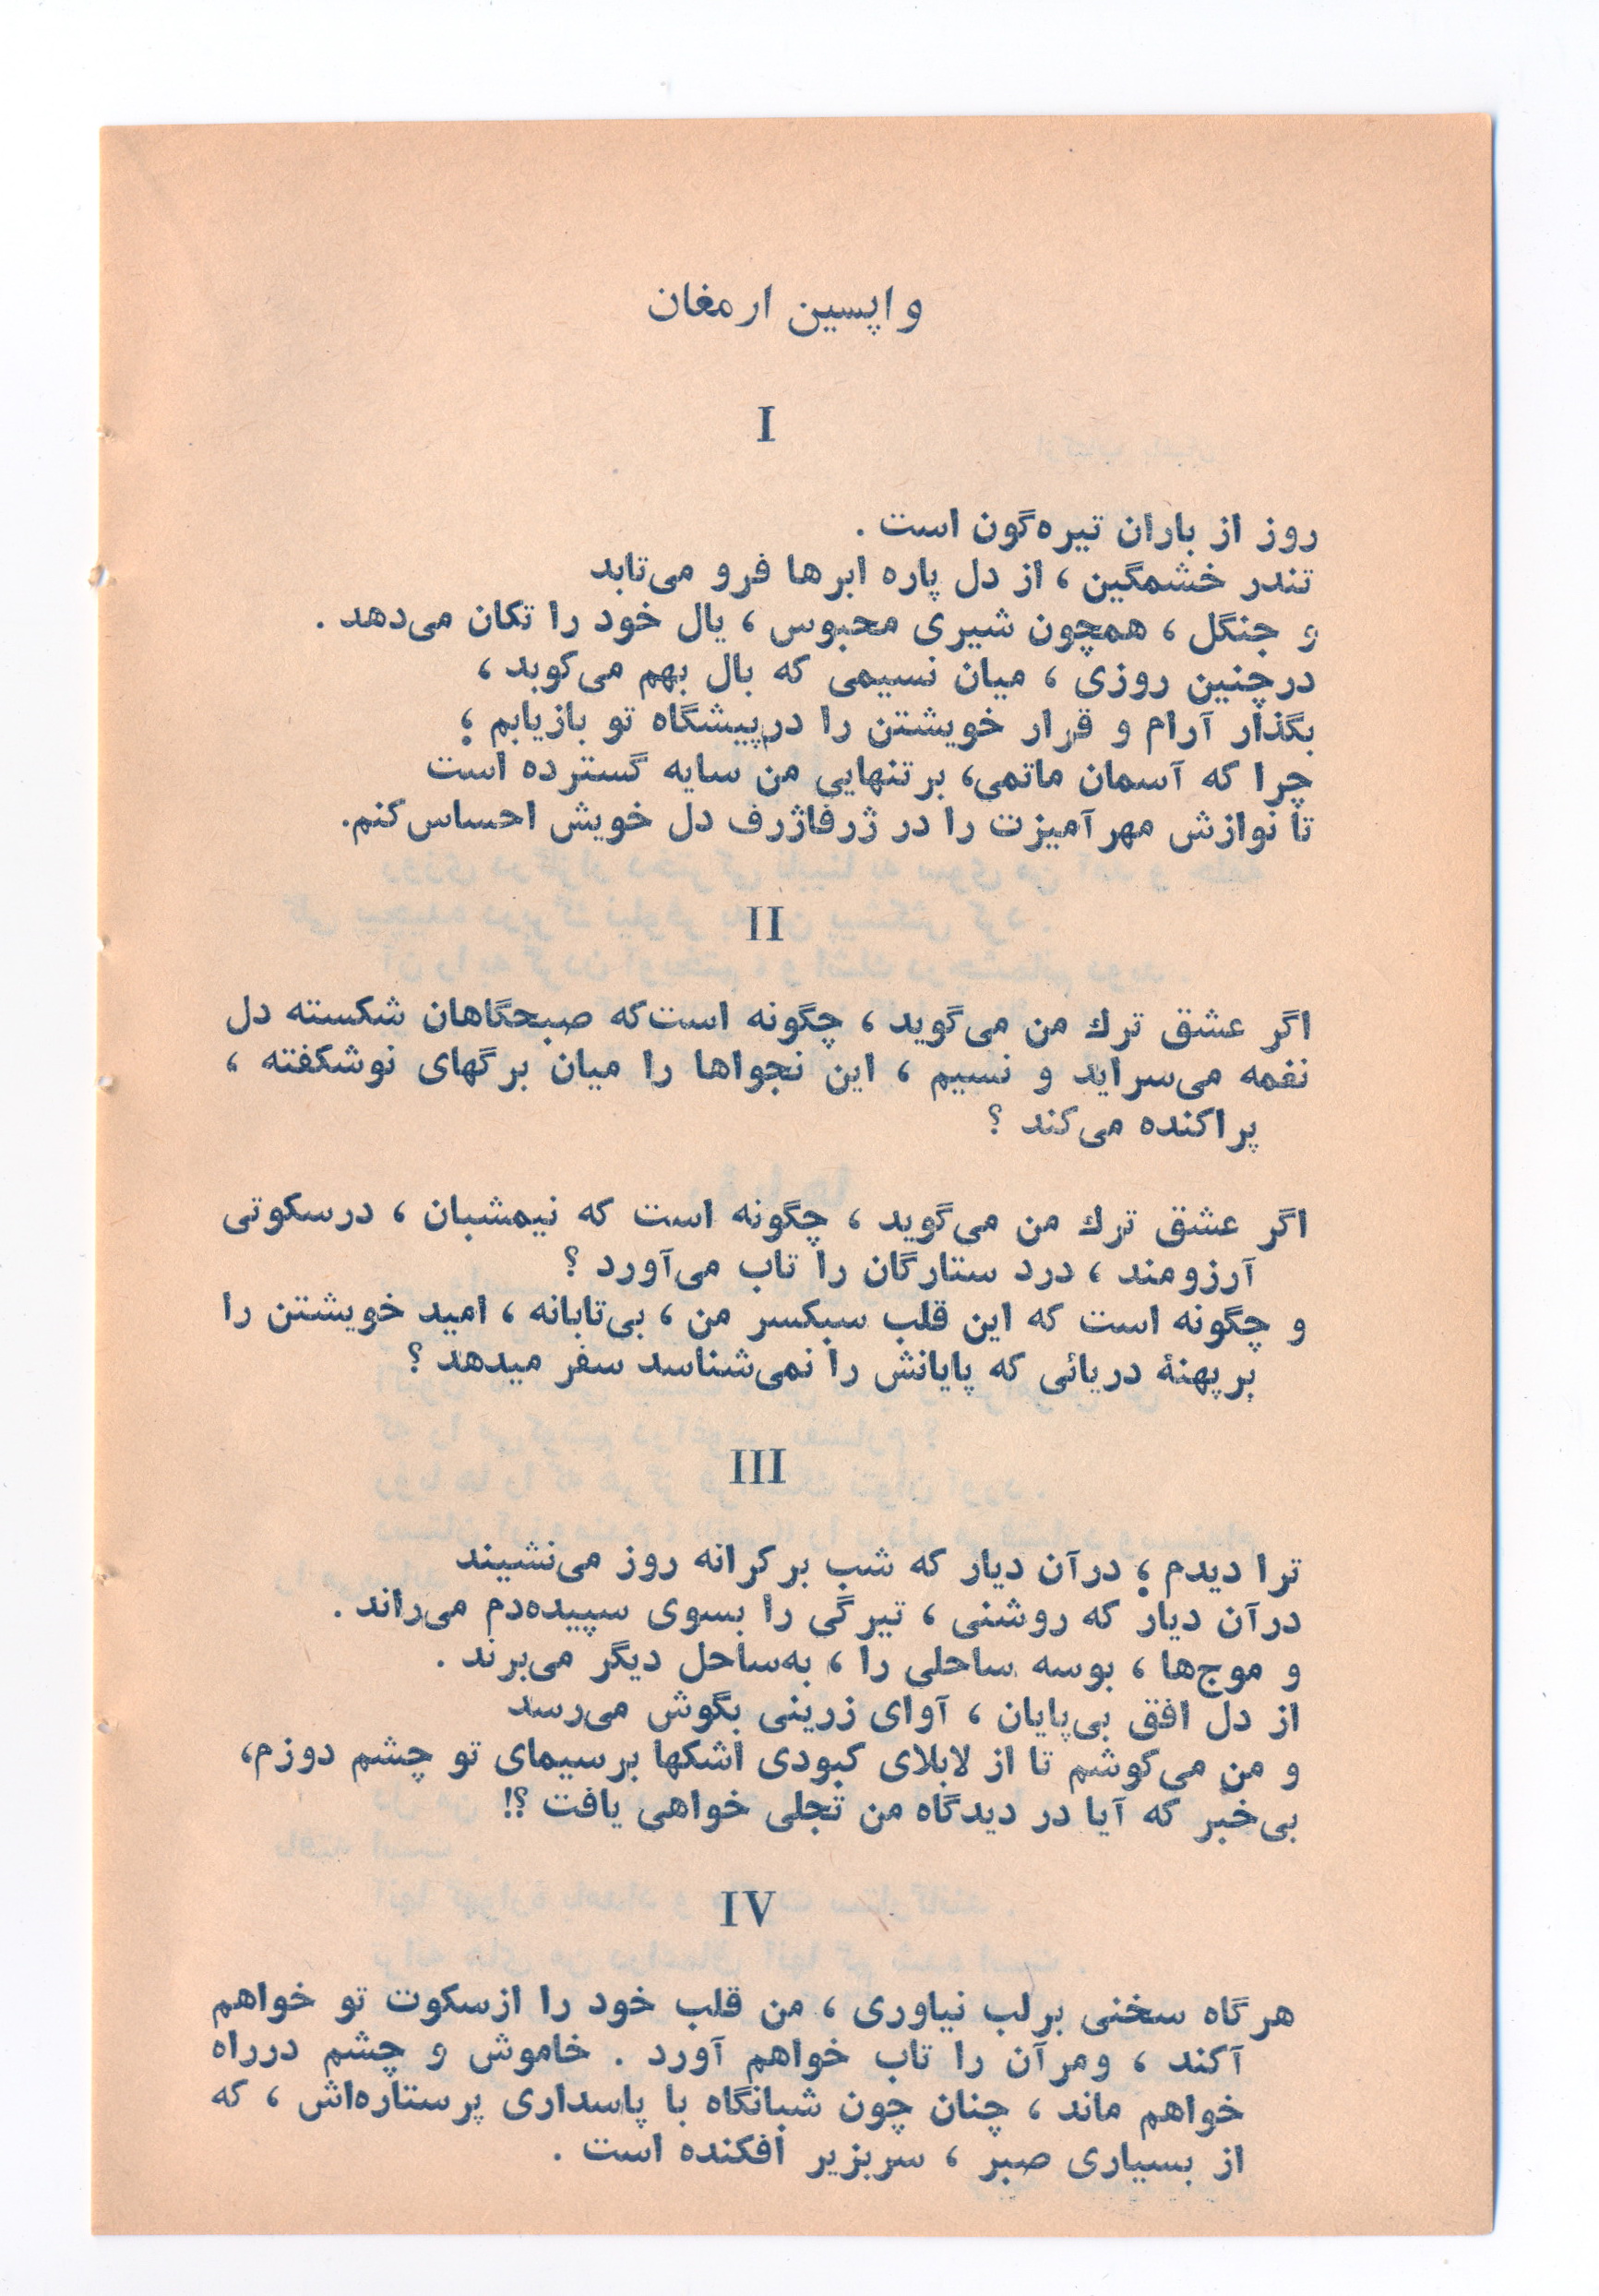 واپسین ارمغان
I
روز از باران تیره‌گون است .
تندر خشمگین ، از دل پاره ابرها فرو می‌تابد
و جنگل ، همچون شیری محبوس ، یال خود را تکان می‌دهد .
درچنین روزی ، میان نسیمی که بال بهم می‌کوبد ،
بگذار آرام و قرار خویشتن را درپیشگاه تو بازیابم ؛
چرا که آسمان ماتمی، برتنهایی من سایه گسترده است
تا نوازش مهرآمیزت را در ژرفاژرف دل خویش احساس‌کنم.
II
اگر عشق ترك من می‌گوید ، چگونه است‌که صبحگاهان شکسته دل
نغمه می‌سراید و نسیم ، این نجواها را میان برگهای نوشکفته ،
پراکنده می‌کند ؟
اگر عشق ترك من می‌گوید ، چگونه است که نیمشبان ، درسکوتی
آرزومند ، درد ستارگان را تاب می‌آورد ؟
و چگونه است که این قلب سبکسر من ، بی‌تابانه ، امید خویشتن را
برپهنهٔ دریائی که پایانش را نمی‌شناسد سفر میدهد ؟
III
ترا دیدم ؛ درآن دیار که شب برکرانه روز می‌نشیند
درآن دیار که روشنی ، تیرگی را بسوی سپیده‌دم می‌راند .
و موج‌ها ، بوسه ساحلی را ، به‌ساحل دیگر می‌برند .
از دل افق بی‌پایان ، آوای زرینی بگوش می‌رسد
و من می‌کوشم تا از لابلای کبودی اشکها برسیمای تو چشم دوزم،
بی‌خبر که آیا در دیدگاه من تجلی خواهی یافت ؟!
IV
هرگاه سخنی برلب نیاوری ، من قلب خود را ازسکوت تو خواهم
آکند ، ومرآن را تاب خواهم آورد . خاموش و چشم درراه
خواهم ماند ، چنان چون شبانگاه با پاسداری پرستاره‌اش ، که
از بسیاری صبر ، سربزیر افکنده است .